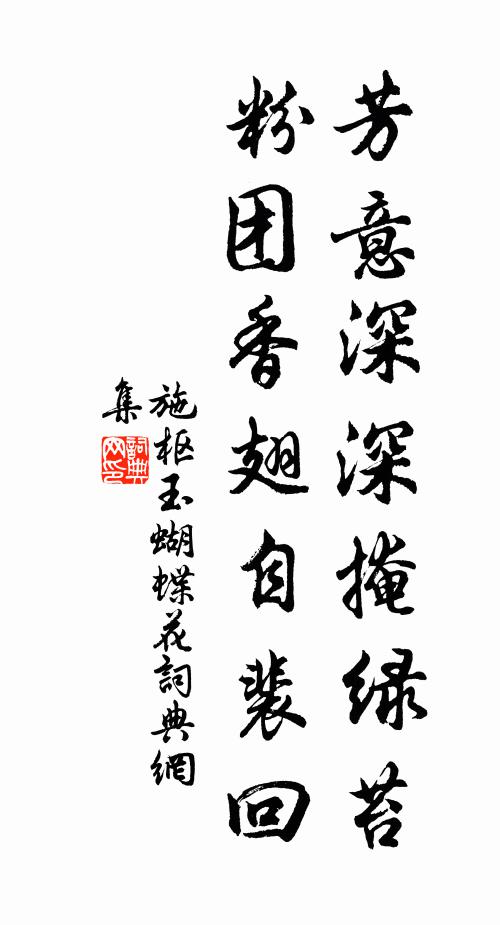 芳意深深掩绿苔
粉团香翅自裴回
施枢玉蝴蝶花詞典網
集
詞典
网印